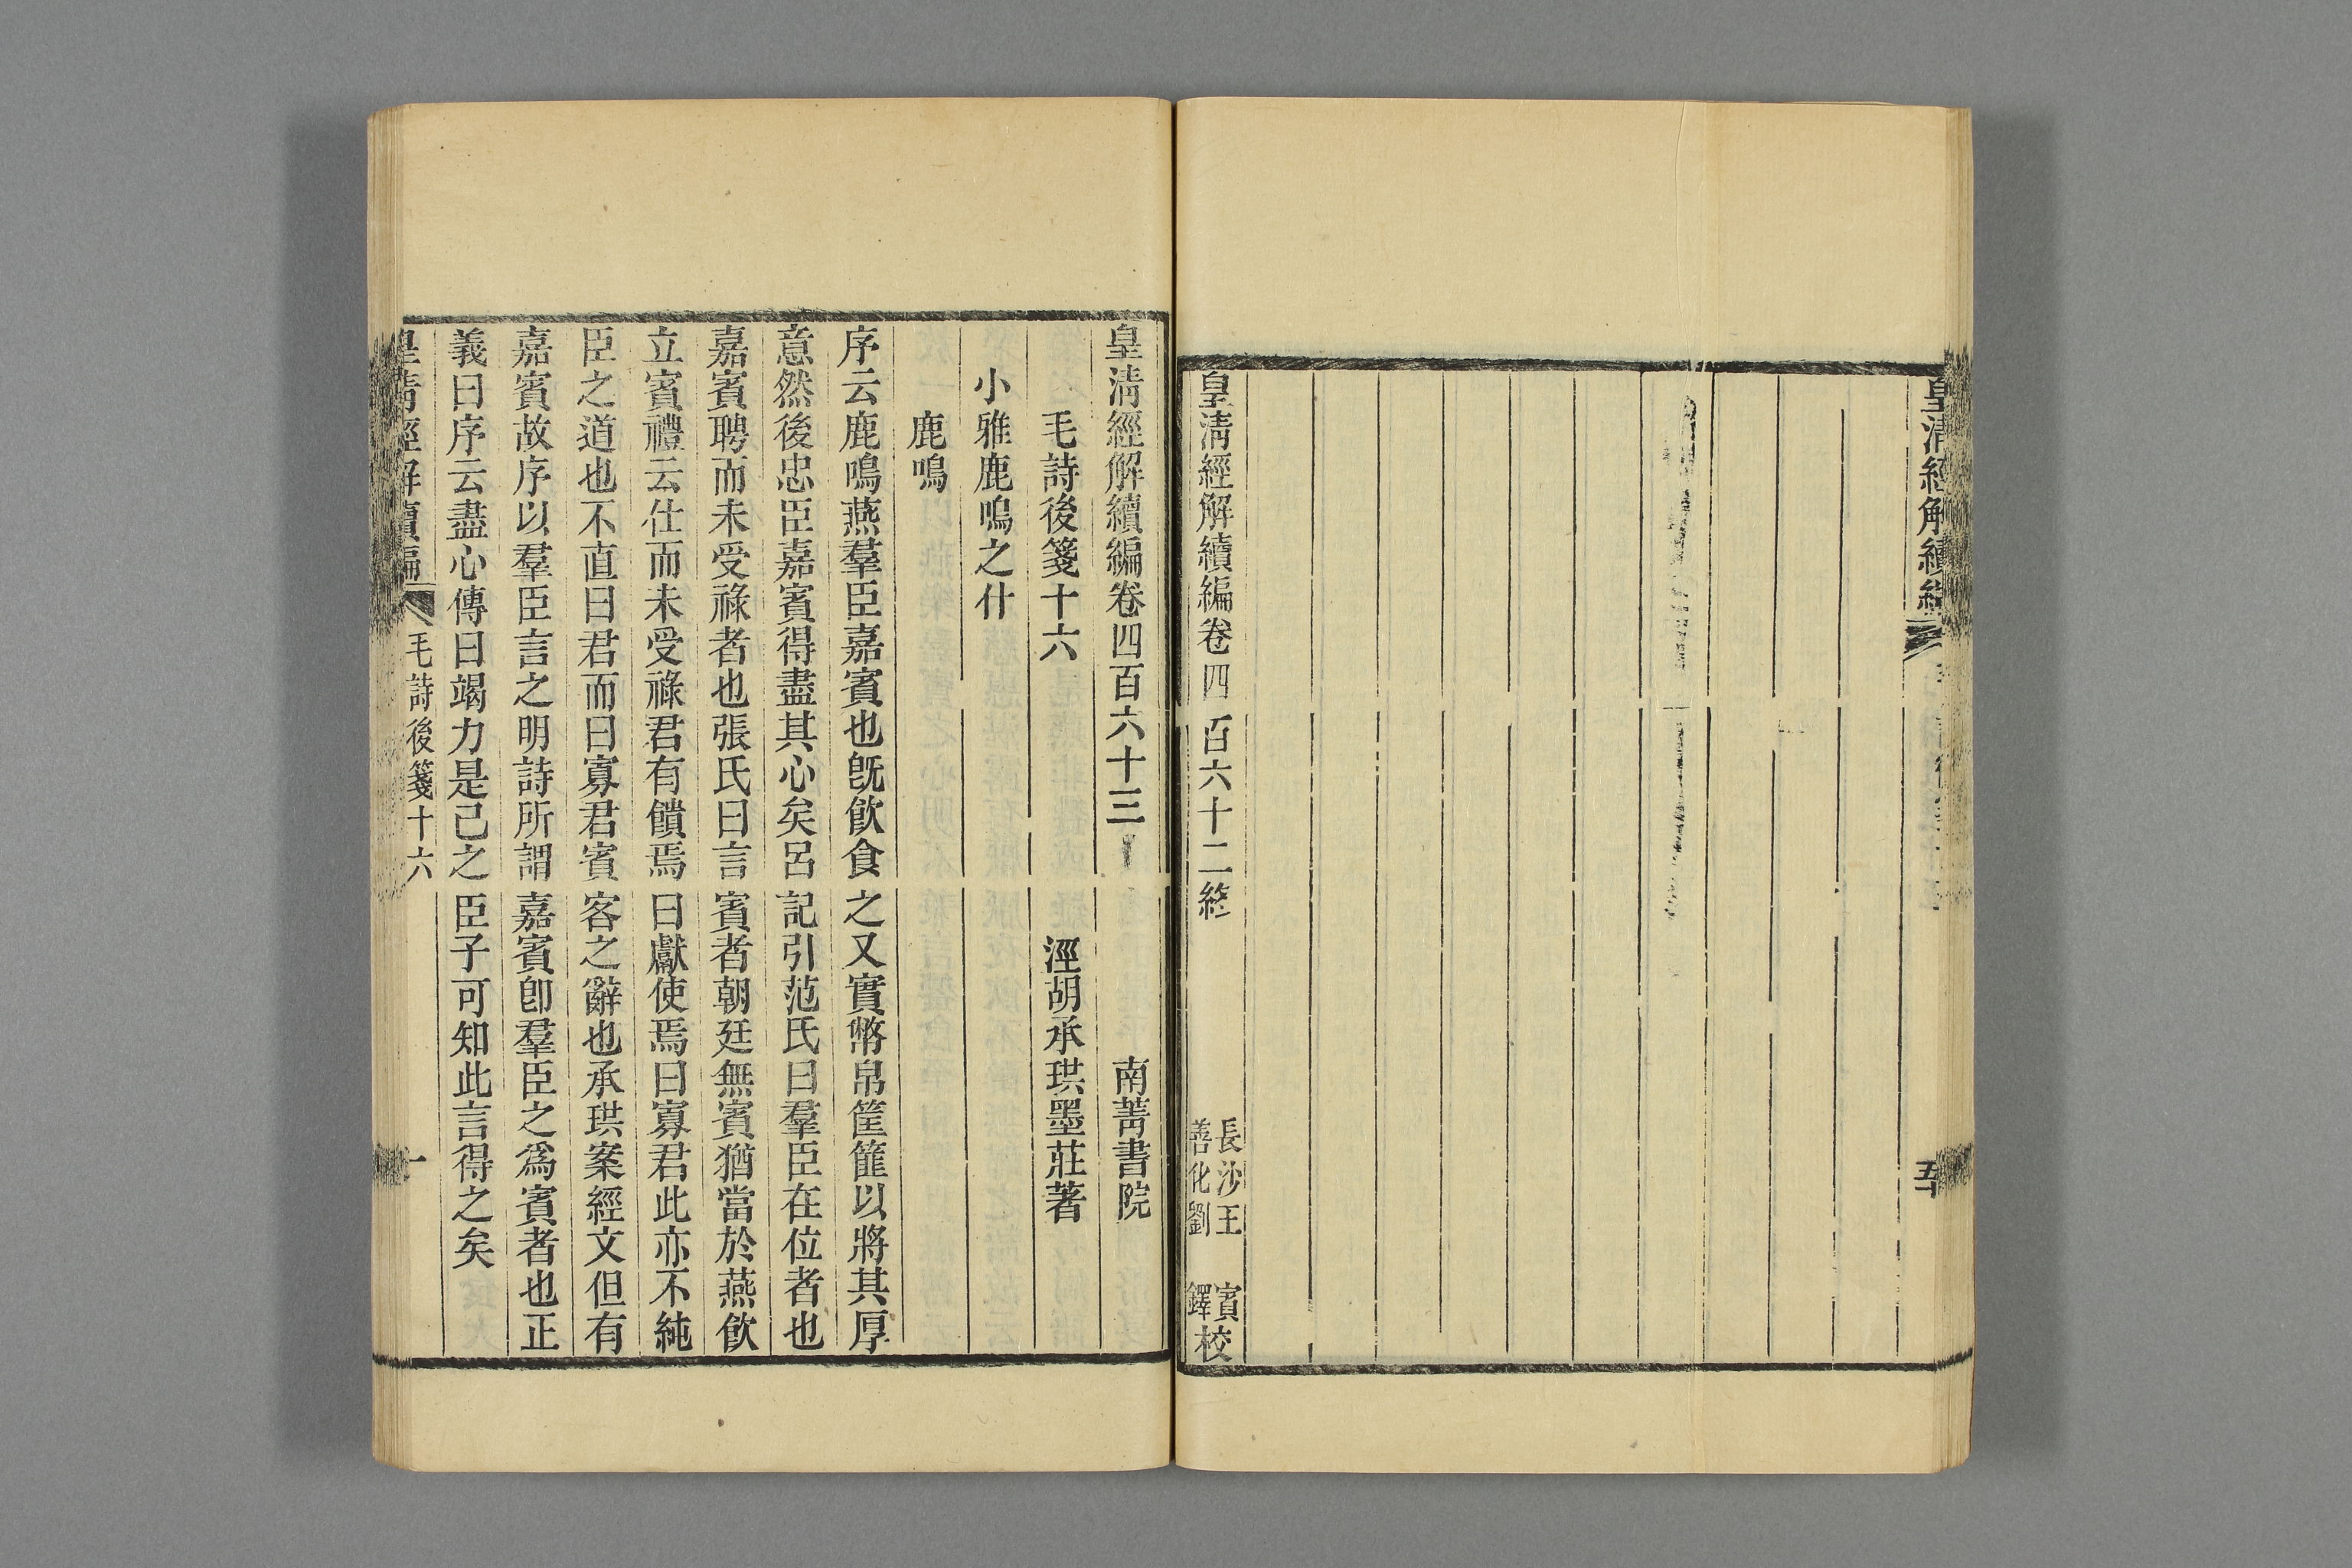 皇清經解續編
皇清經解續編卷四百六十二終
長沙王 賓
善化劉 鐸校
皇清經解續編卷四百六十三 南菁書院
毛詩後箋十六 涇胡承珙墨莊著
小雅鹿鳴之什
鹿鳴
序云鹿鳴燕羣臣嘉賓也旣飮食之又實幣帛筐篚以將其厚
意然後忠臣嘉賓得盡其心矣呂記引范氏曰羣臣在位者也
嘉賓聘而未受祿者也張氏曰言賓者朝廷無賓猶當於燕飮
立賓禮云仕而未受祿君有饋焉曰獻使焉曰寡君此亦不純
臣之道也不直曰君而曰寡君賓客之辭也承珙案經文但有
嘉賓故序以羣臣言之明詩所謂嘉賓卽羣臣之爲賓者也正
義曰序云盡心傳曰竭力是己之臣子可知此言得之矣
皇清經解續編 毛詩後箋十六 一